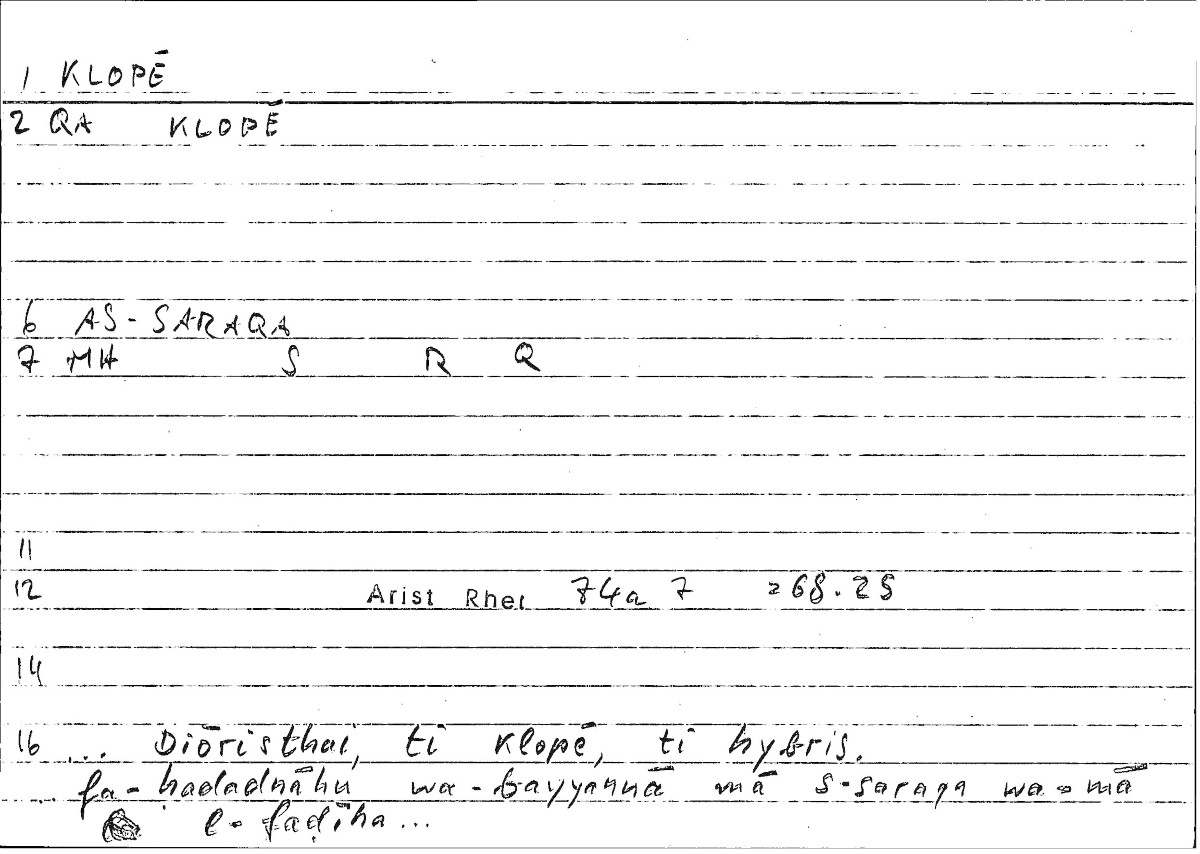 1 KLOPĒ
2 QA KLOPĒ
6 AS-SARAQA
7 MH S R Q
11
12 Arist Rhet 74a 7 =68.25
14
16 ... Diōristhai, ti klopē, ti hybris.
... fa-hadadnāhu wa-bayyannā mā s-saraqa wa-mā
l-faḍīḥa...